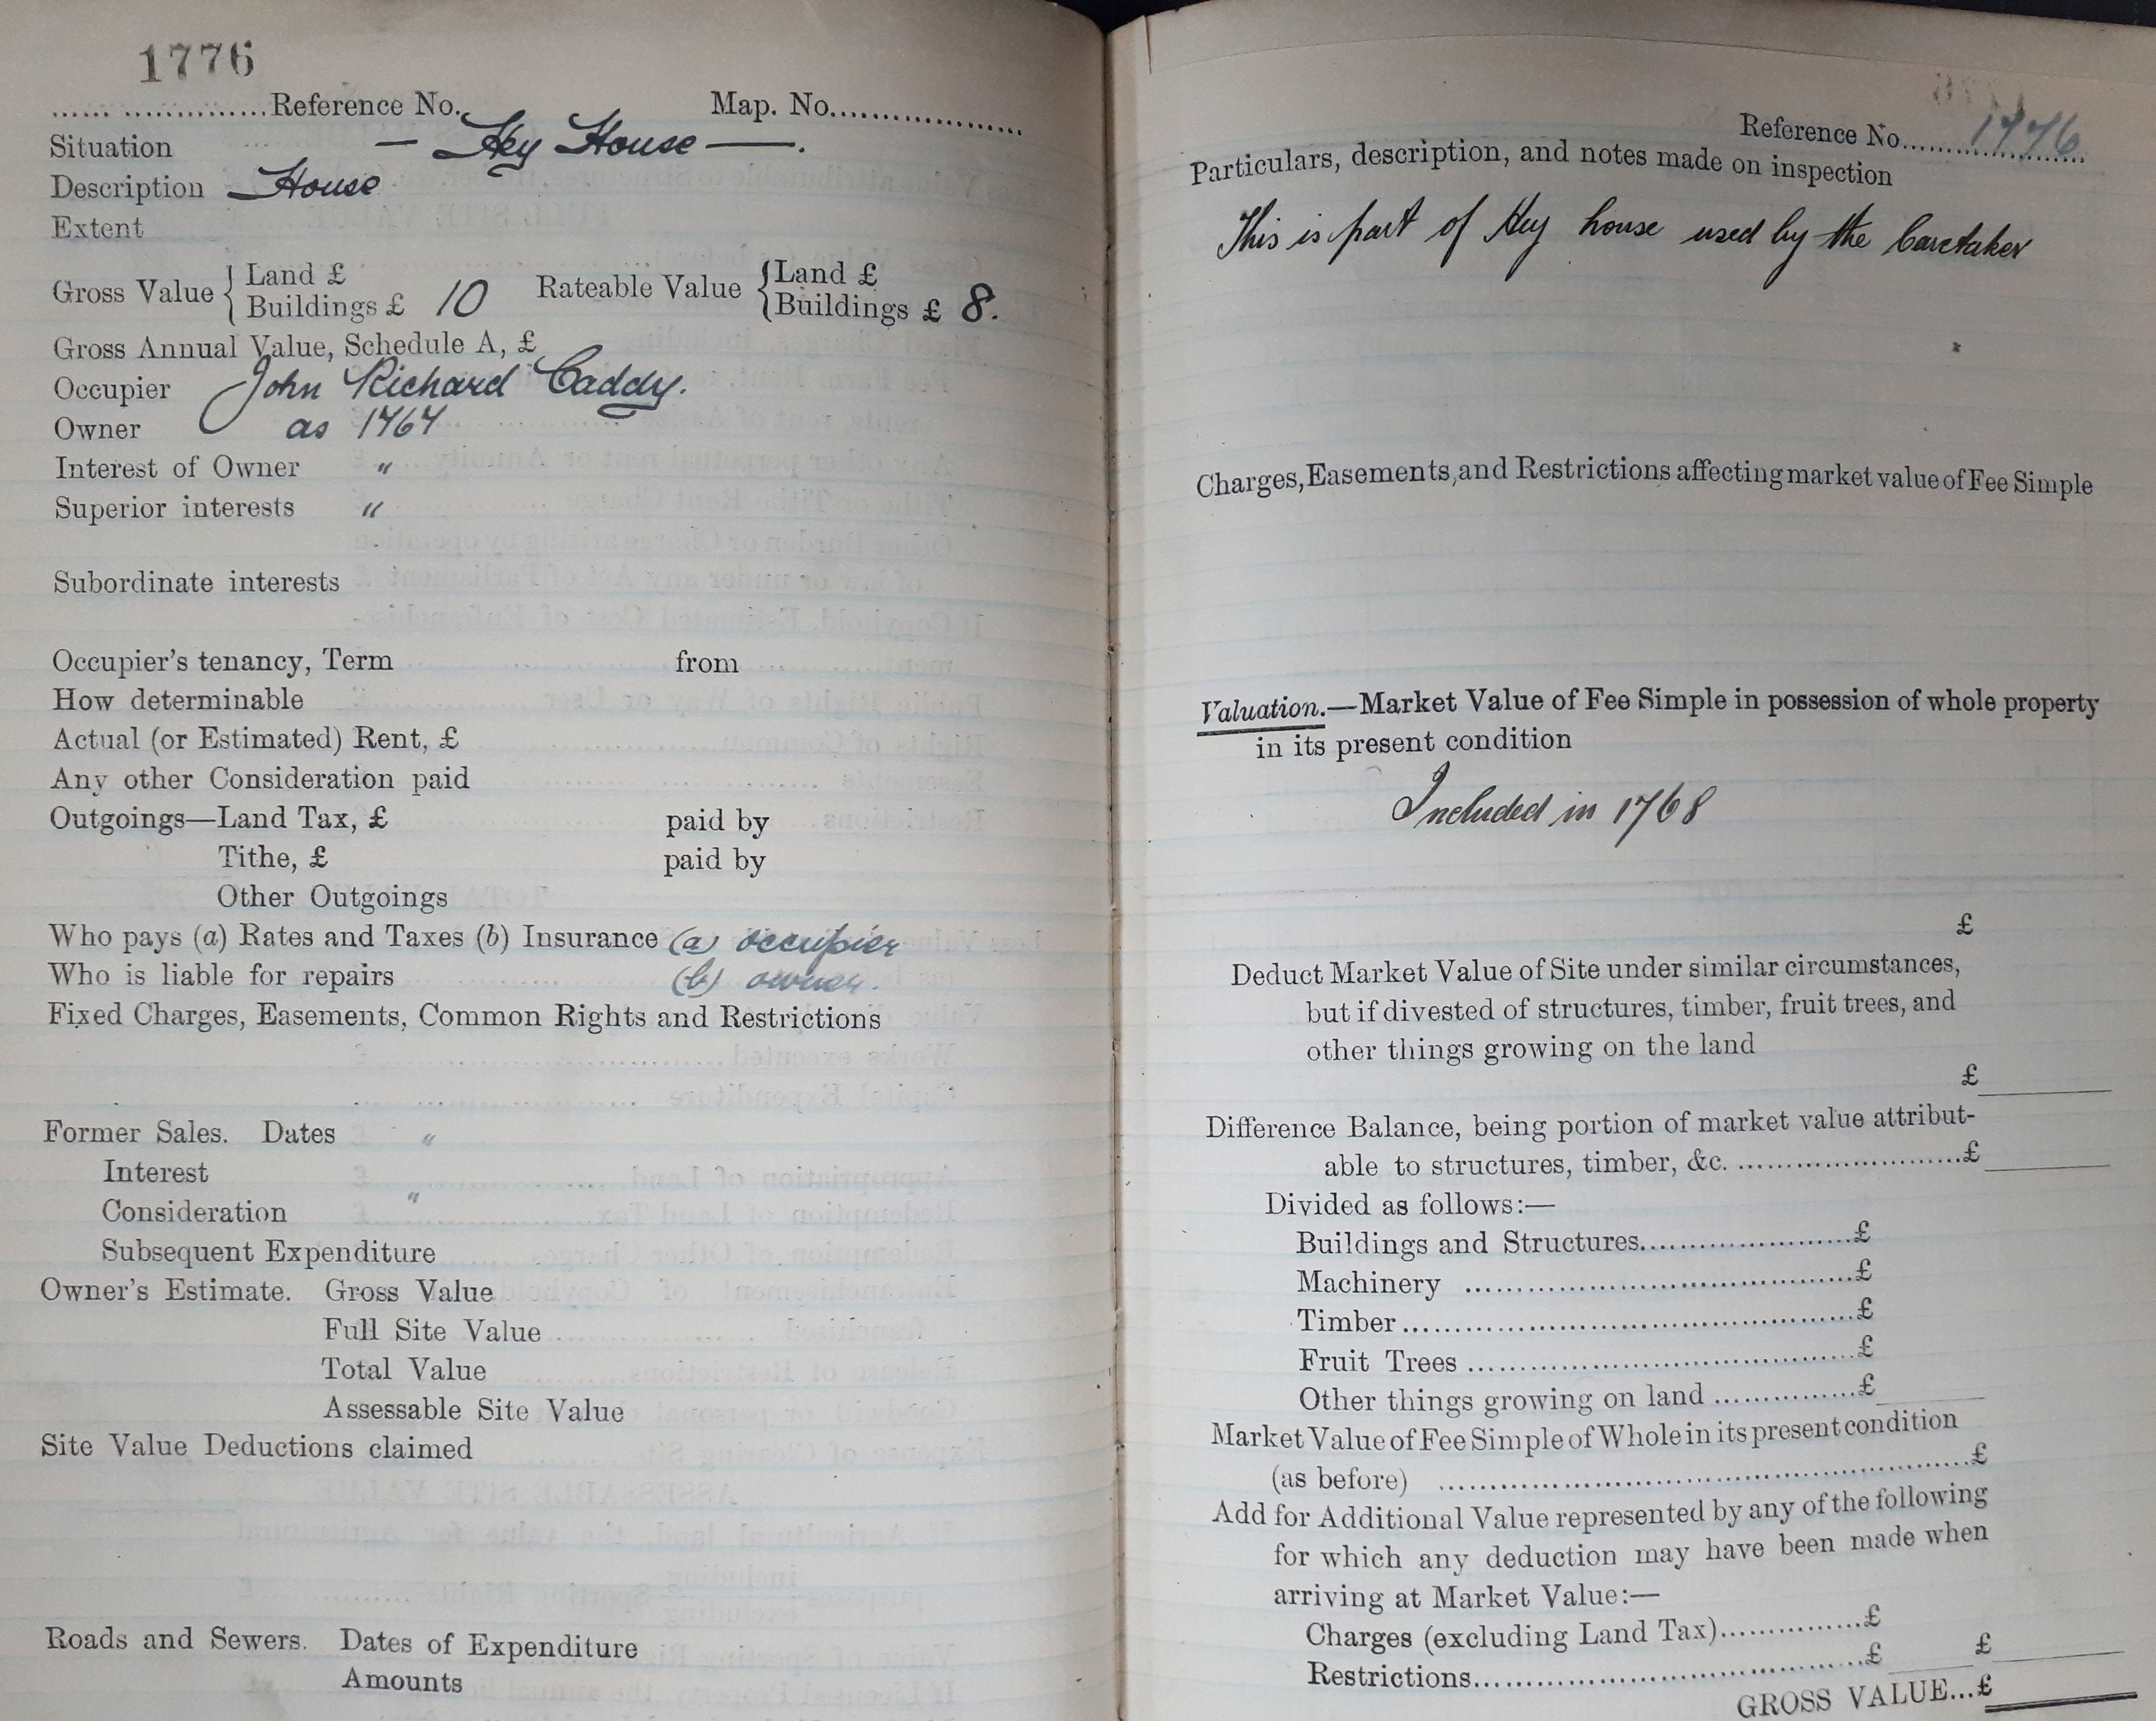 1776
Reference No. Map. No.
Situation — Hey House —.
Description House
Extent
Gross Value { Land £ Rateable Value { Land £
Buildings £ 10 Buildings £ 8.
Gross Annual Value, Schedule A, £
Occupier John Richard Caddy.
Owner as 1767
Interest of Owner "
Superior interests "
Subordinate interests
Occupier's tenancy, Term from
How determinable
Actual (or Estimated) Rent, £
Any other Consideration paid
Outgoings—Land Tax, £ paid by
Tithe, £ paid by
Other Outgoings
Who pays (a) Rates and Taxes (b) Insurance (a) occupier
Who is liable for repairs (b) owner.
Fixed Charges, Easements, Common Rights and Restrictions
Former Sales. Dates "
Interest
Consideration "
Subsequent Expenditure
Owner's Estimate. Gross Value
Full Site Value
Total Value
Assessable Site Value
Site Value Deductions claimed
Roads and Sewers. Dates of Expenditure
Amounts
Reference No. 1776
Particulars, description, and notes made on inspection
This is part of Hey house used by the Caretaker
Charges, Easements, and Restrictions affecting market value of Fee Simple
Valuation.—Market Value of Fee Simple in possession of whole property
in its present condition
Included in 1768
£
Deduct Market Value of Site under similar circumstances,
but if divested of structures, timber, fruit trees, and
other things growing on the land
£
Difference Balance, being portion of market value attribut-
able to structures, timber, &c. £
Divided as follows:—
Buildings and Structures £
Machinery £
Timber £
Fruit Trees £
Other things growing on land £
Market Value of Fee Simple of Whole in its present condition
(as before) £
Add for Additional Value represented by any of the following
for which any deduction may have been made when
arriving at Market Value:—
Charges (excluding Land Tax) £
Restrictions £ £
GROSS VALUE... £